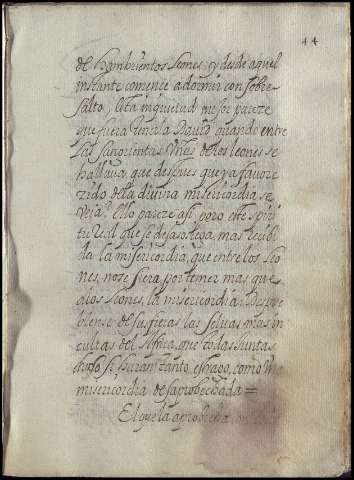 44
de hambrientos leones: y desde aquel
instante comence a dormir con sobre
salto, esta inquietud mejor pareze
que fuera tenerla David quando entre
las sangrientas Vñas de los leones se
hallaua, que despues que ya fauore
zido de la diuina misericordia se
veja. Ello pareze asi, pero este spiri
tu Real que se desasosiega, mas recibi
da la misericordia, que entre los leo
nes, nose fiera, por temer mas que
alos leones, la misericordia:
blense de sus fieras las seluas mas in
cultas del Africa, que todas juntas
no haran tanto estrago, como Vna
misericordia desaprobechada =
El que la aprobecha